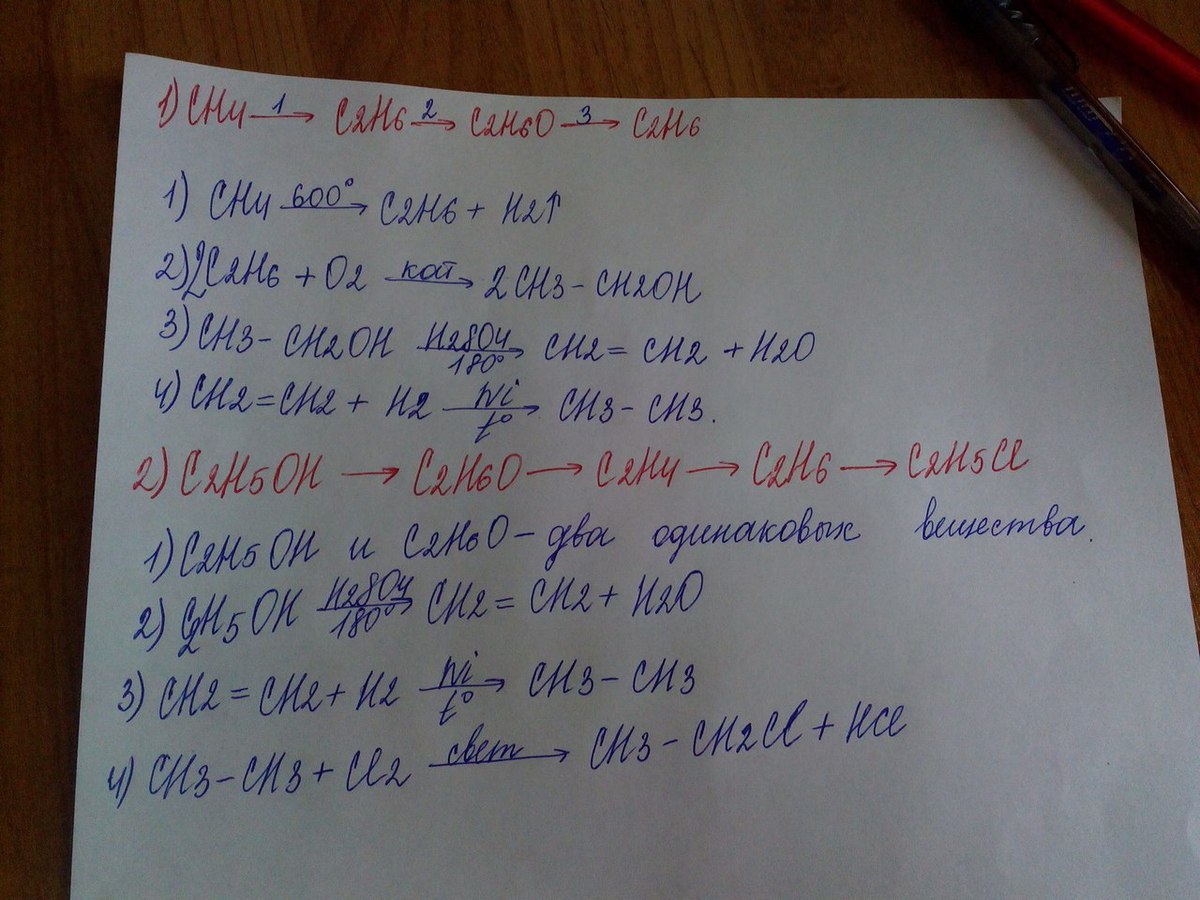 1) CH4 1→ C2H6 2→ C2H6O 3→ C2H6
1) CH4 600°→ C2H6 + H2↑
2) 2C2H6 + O2 кат→ 2CH3 - CH2OH
3) CH3 - CH2OH H2SO4 180°→ CH2 = CH2 + H2O
4) CH2 = CH2 + H2 Ni t°→ CH3 - CH3.
2) C2H5OH → C2H6O → C2H4 → C2H6 → C2H5Cl
1) C2H5OH и C2H6O - два одинаковых вещества.
2) C2H5OH H2SO4 180°→ CH2 = CH2 + H2O
3) CH2 = CH2 + H2 Ni t°→ CH3 - CH3
4) CH3 - CH3 + Cl2 свет→ CH3 - CH2Cl + HCl